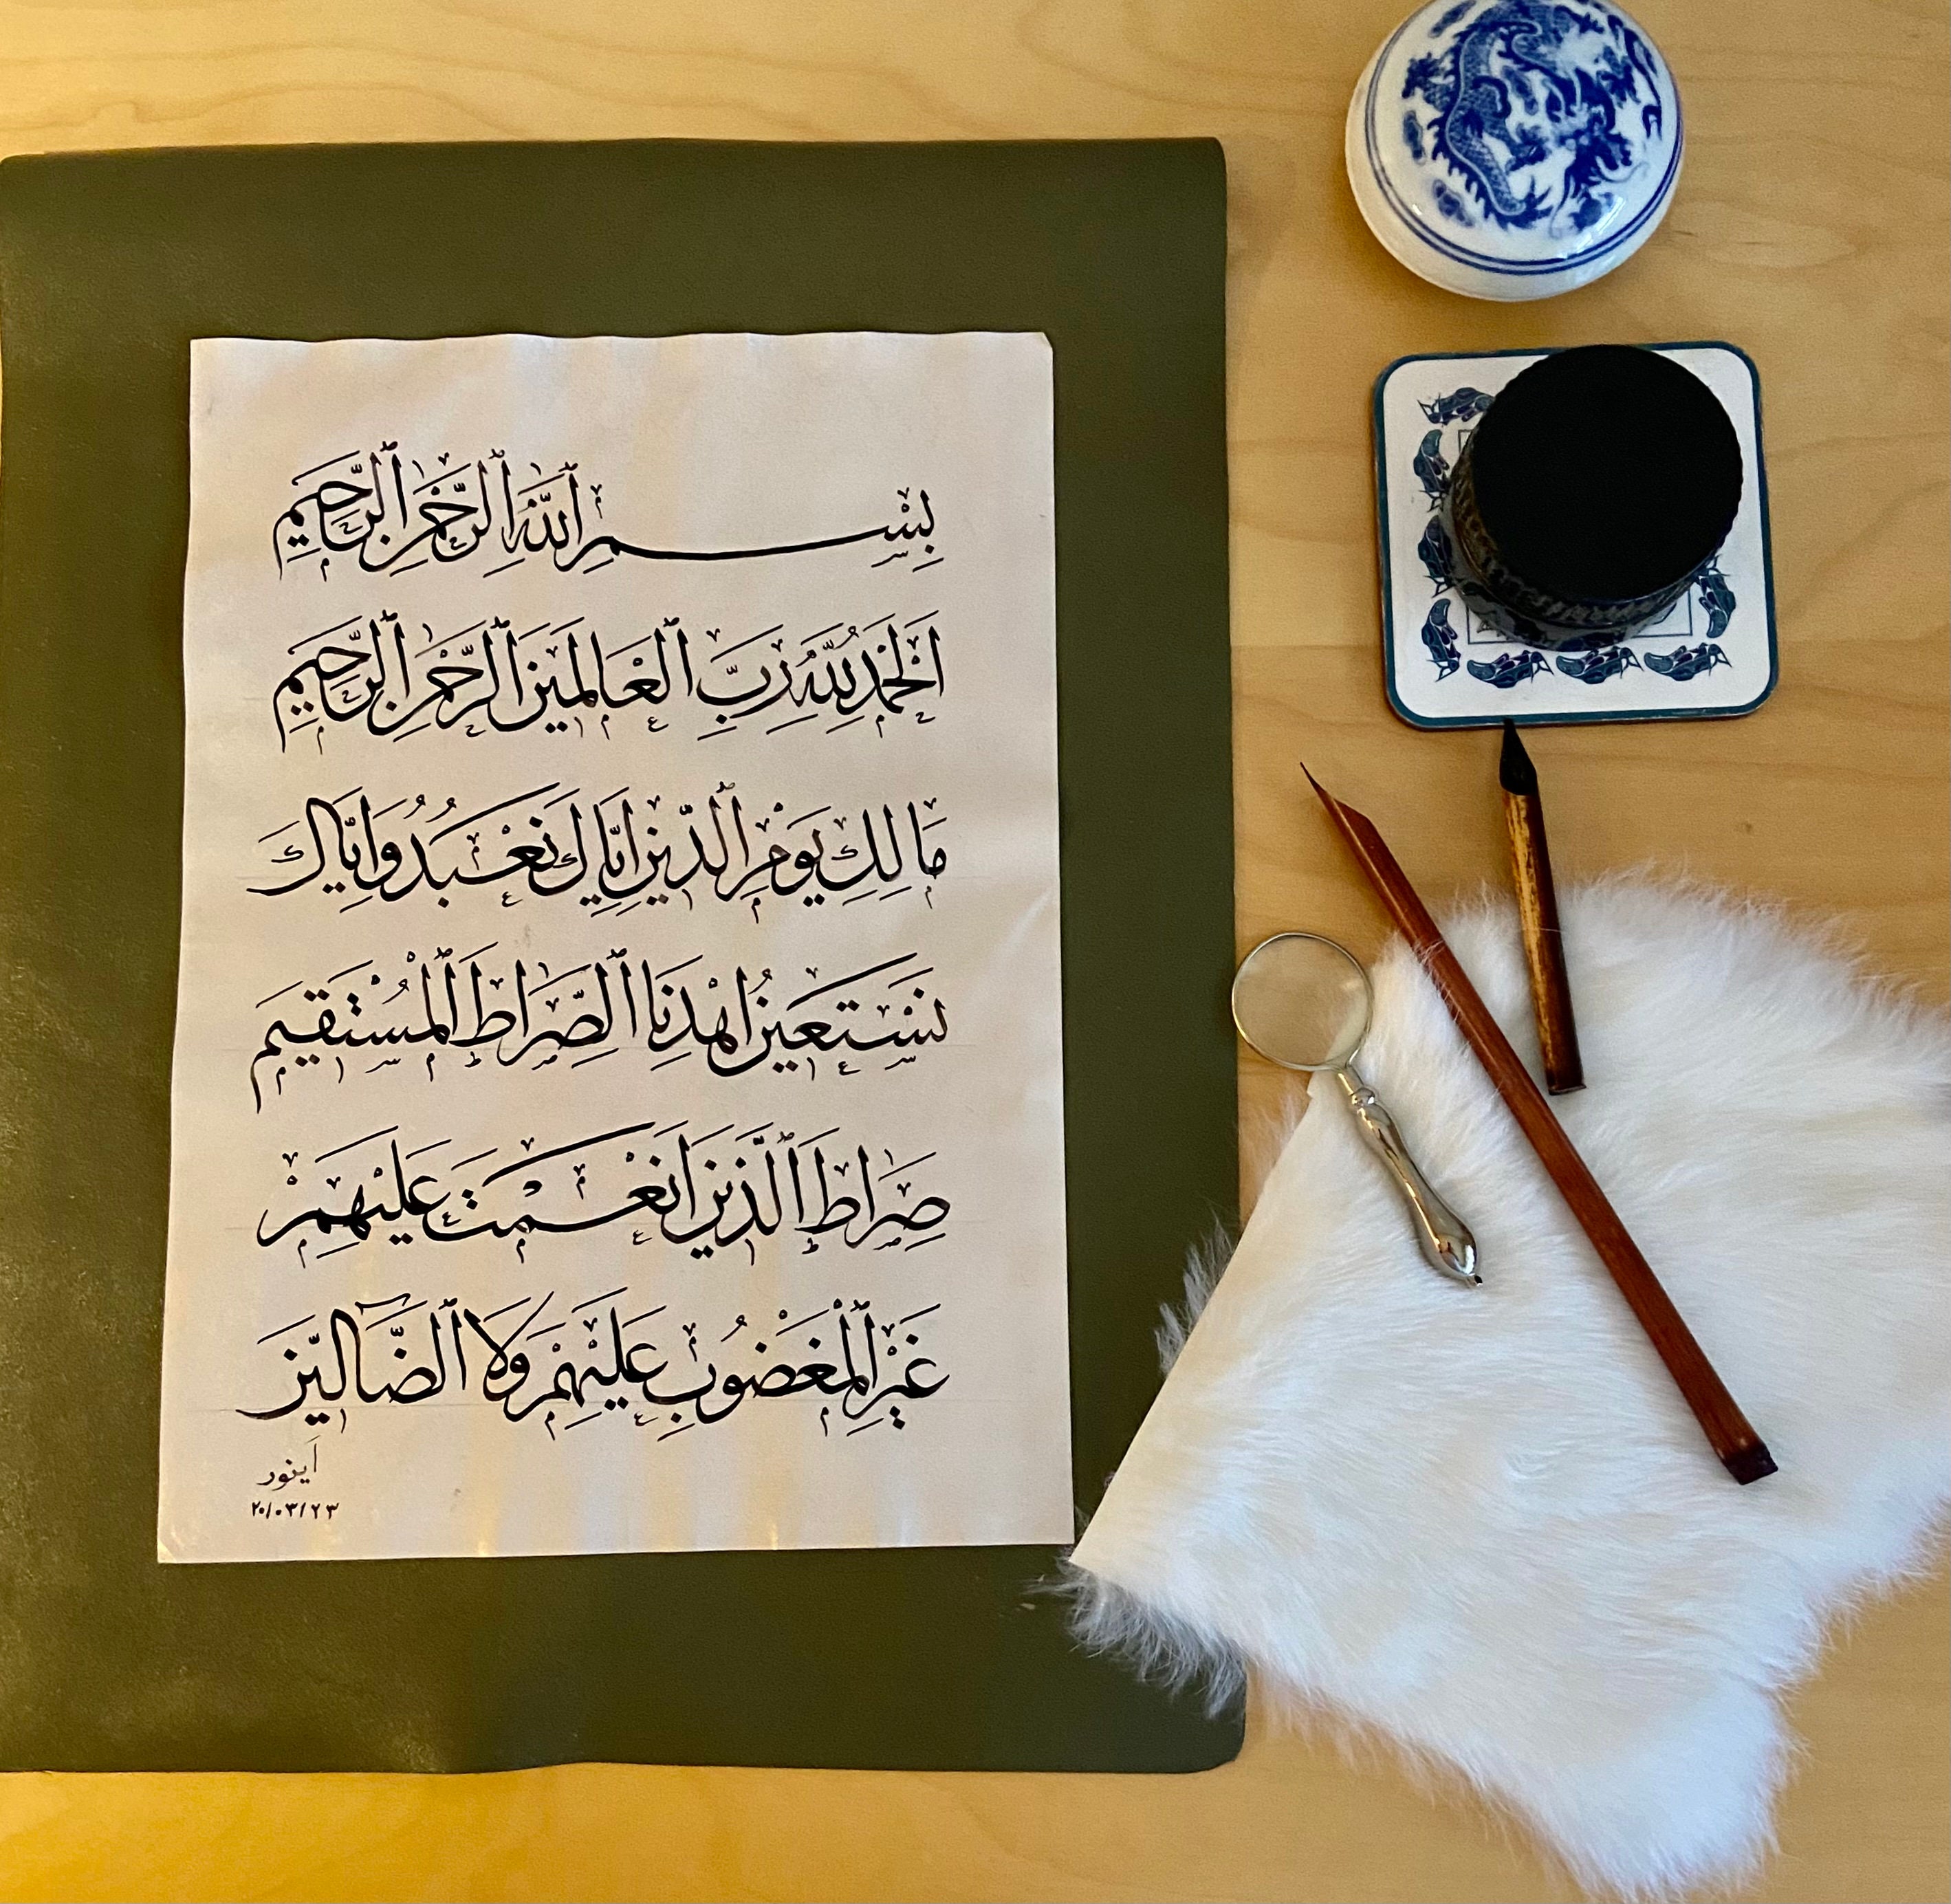 بِسْمِ ٱللَّهِ ٱلرَّحْمٰنِ ٱلرَّحِيمِ
اَلْحَمْدُ لِلّٰهِ رَبِّ ٱلْعَالَمِينَ ٱلرَّحْمٰنِ ٱلرَّحِيمِ
مَالِكِ يَوْمِ ٱلدِّينِ اِيَّاكَ نَعْبُدُ وَاِيَّاكَ
نَسْتَعِينُ اهْدِنَا ٱلصِّرَاطَ ٱلْمُسْتَقِيمَ
صِرَاطَ ٱلَّذِينَ اَنْعَمْتَ عَلَيْهِمْ
غَيْرِ ٱلْمَغْضُوبِ عَلَيْهِمْ وَلَا ٱلضَّآلِّينَ
اَينور
٢٠/٠٣/٢٣